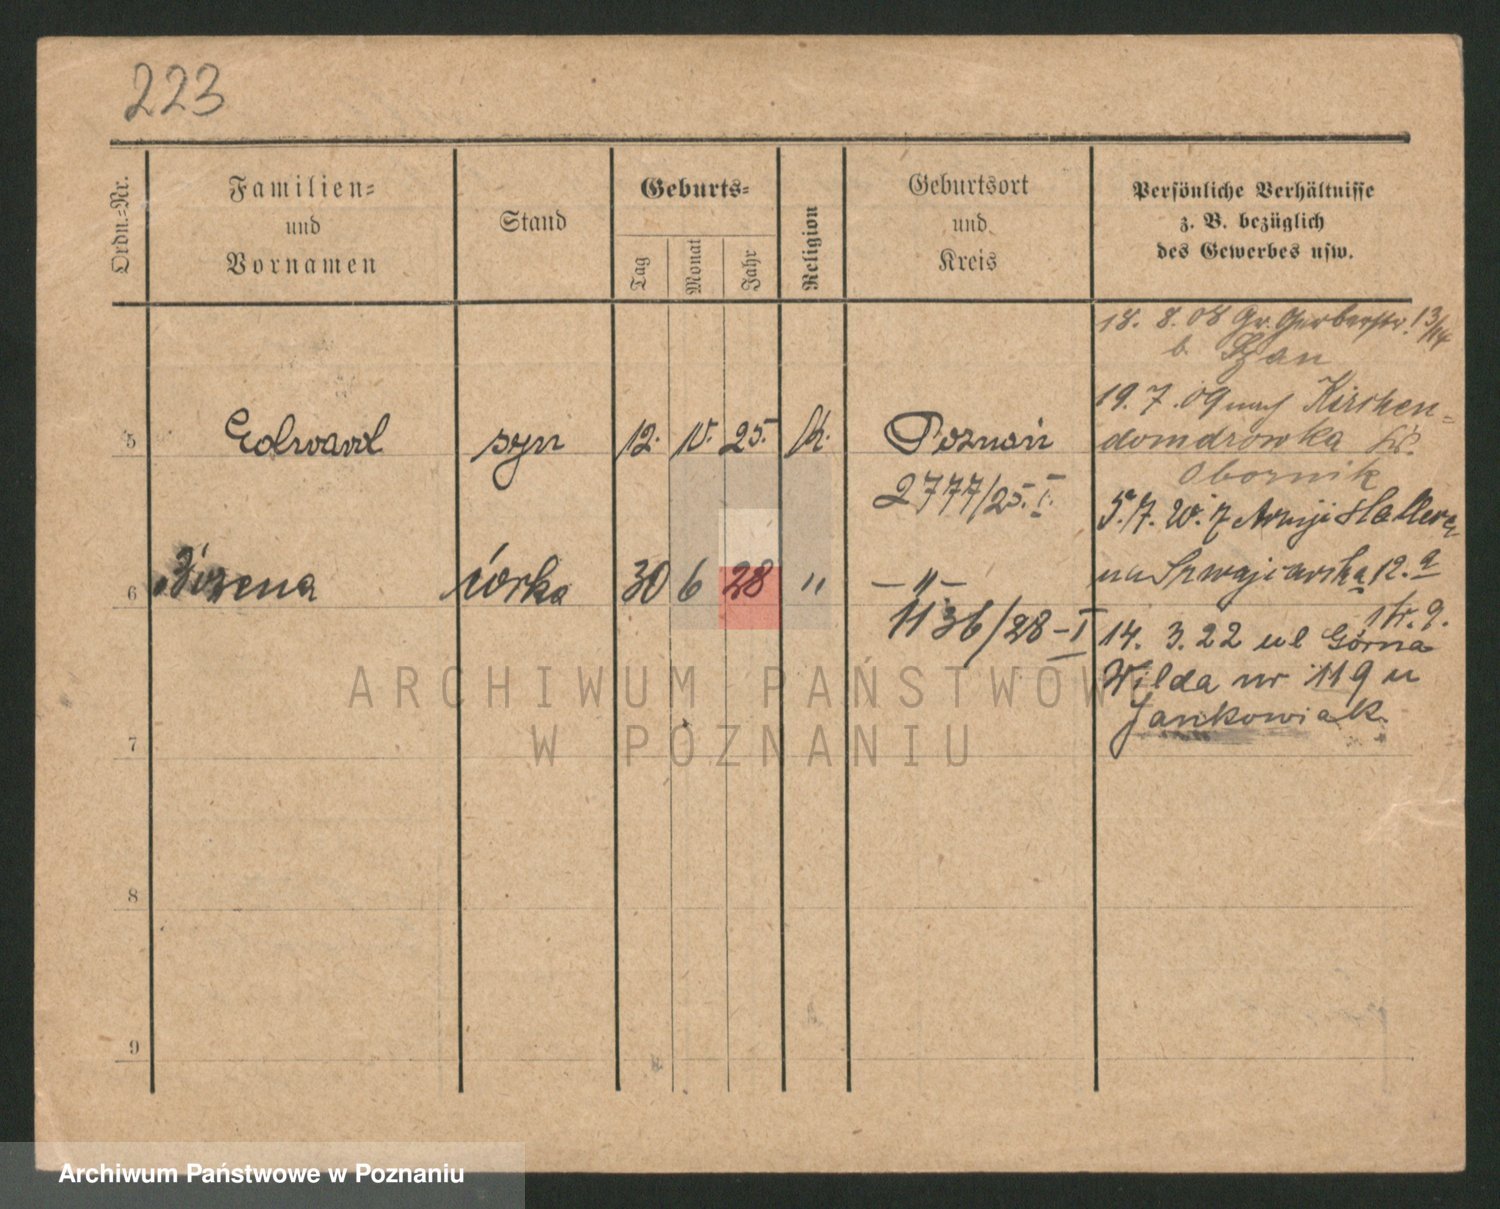 223
Ordn.-Nr.
Familien-
und
Vornamen
Stand
Geburts-
Tag
Monat
Jahr
Religion
Geburtsort
und
Kreis
Persönliche Verhältnisse
z. B. bezüglich
des Gewerbes usw.
18. 8. 08 Gr. Gerberstr. 13/14
b.
19. 7. 09 nach Kirchen-
domdrowka Kr.
Obornik
5 Edward syn 12. V. 25. K. Poznań
2777/25. I.
5. 7. Armji Hallera
na Szwajcarska 12.a
str. 9.
6 córka 30 6 28 " — " —
1136/28 - I
14. 3. 22 ul Górna
Wilda nr 119 u
Jankowiak
7
8
9
ARCHIWUM PAŃSTWOWE
W POZNANIU
Archiwum Państwowe w Poznaniu